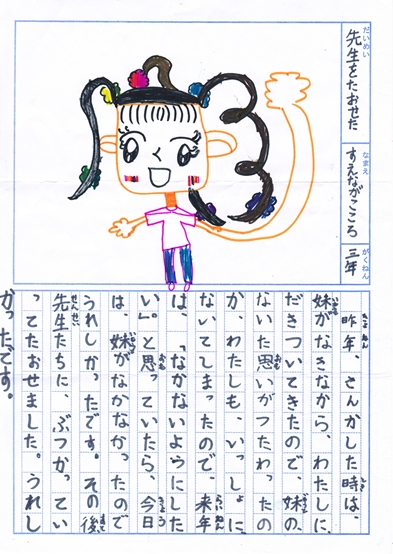 だいめい
先生をたおせた
なまえ
すえながこころ
がくねん
三年
昨年、さんかした時は、
妹がなきながら、わたしに、
だきついてきたので、妹の、
ないた思いがつたわったの
か、わたしも、いっしょに、
ないてしまったので、来年
は、「なかないようにした
い」。と思っていたら、今日
は、妹がなかなかったので
うれしかったです。その後、
先生たちに、ぶつかってい
ってたおせました。うれし
かったです。